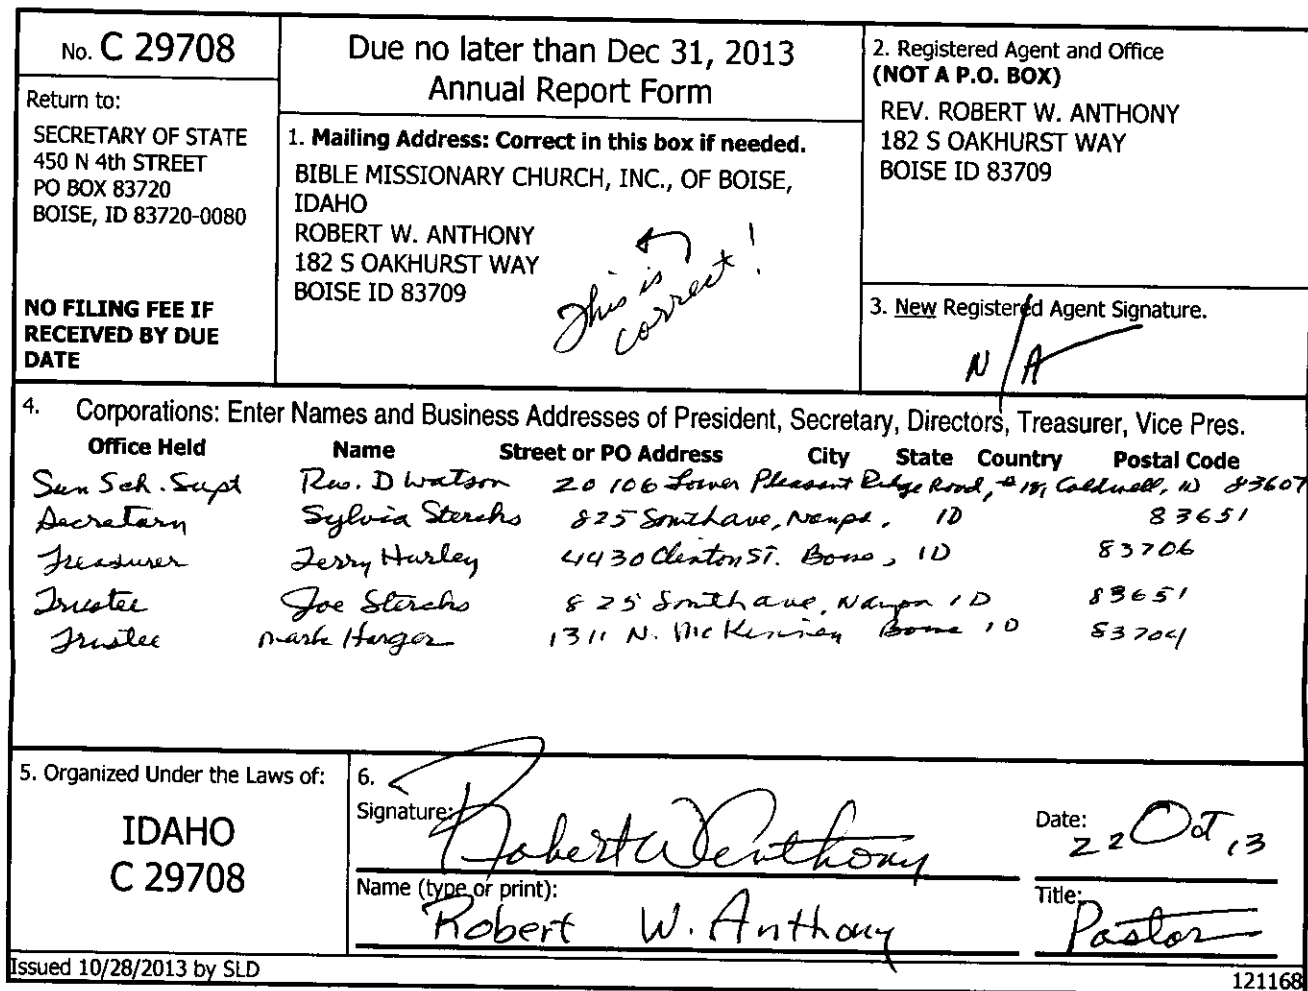 No. C 29708
Return to:
SECRETARY OF STATE
450 N 4th STREET
PO BOX 83720
BOISE, ID 83720-0080
NO FILING FEE IF
RECEIVED BY DUE
DATE
Due no later than Dec 31, 2013
Annual Report Form
1. Mailing Address: Correct in this box if needed.
BIBLE MISSIONARY CHURCH, INC., OF BOISE,
IDAHO
ROBERT W. ANTHONY
182 S OAKHURST WAY
BOISE ID 83709
This is
correct!
2. Registered Agent and Office
(NOT A P.O. BOX)
REV. ROBERT W. ANTHONY
182 S OAKHURST WAY
BOISE ID 83709
3. New Registered Agent Signature.
N/A
4. Corporations: Enter Names and Business Addresses of President, Secretary, Directors, Treasurer, Vice Pres.
Office Held Name Street or PO Address City State Country Postal Code
Sun Sch. Supt Rev. D Watson 20106 Lower Pleasant Ridge Road, #18, Caldwell, ID 83607
Secretary Sylvia 825 Smith ave, Nampa, ID 83651
Treasurer Jerry Hurley 4430 Clinton ST. Boise, ID 83706
Trustee Joe 825 Smith ave, Nampa ID 83651
Trustee Mark Harger 1311 N. McKinney Boise ID 83704
5. Organized Under the Laws of:
IDAHO
C 29708
6.
Signature: Robert W Anthony
Date: 22 Oct, 13
Name (type or print): Robert W. Anthony
Title: Pastor
Issued 10/28/2013 by SLD
121168